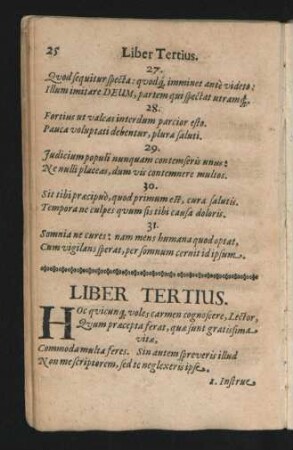 25 Liber Tertius.
27.
Quod sequitur specta: quodq́, imminet antè videto:
Illum imitare DEUM, partem qui spectat utramq́.
28.
Fortius ut valeas interdum parcior esto.
Pauca voluptati debentur, plura saluti.
29.
Judicium populi nunquam contemseris unus:
Ne nulli placeas, dum vis contemnere multos.
30.
Sit tibi præcipuè, quod primum est, cura salutis.
Tempora ne culpes quum sis tibi causa doloris.
31.
Somnia ne cures: nam mens humana quod optat,
Cum vigilans sperat, per somnum cernit id ipsum.
LIBER TERTIUS.
HOc quicunq́, voles carmen cognoscere, Lector,
Quum præcepta ferat, quæ sunt gratissima
vitæ,
Commoda multa feres. Sin autem spreveris illud
Non me scriptorem, sed te neglexeris ipse.
1. Instrue